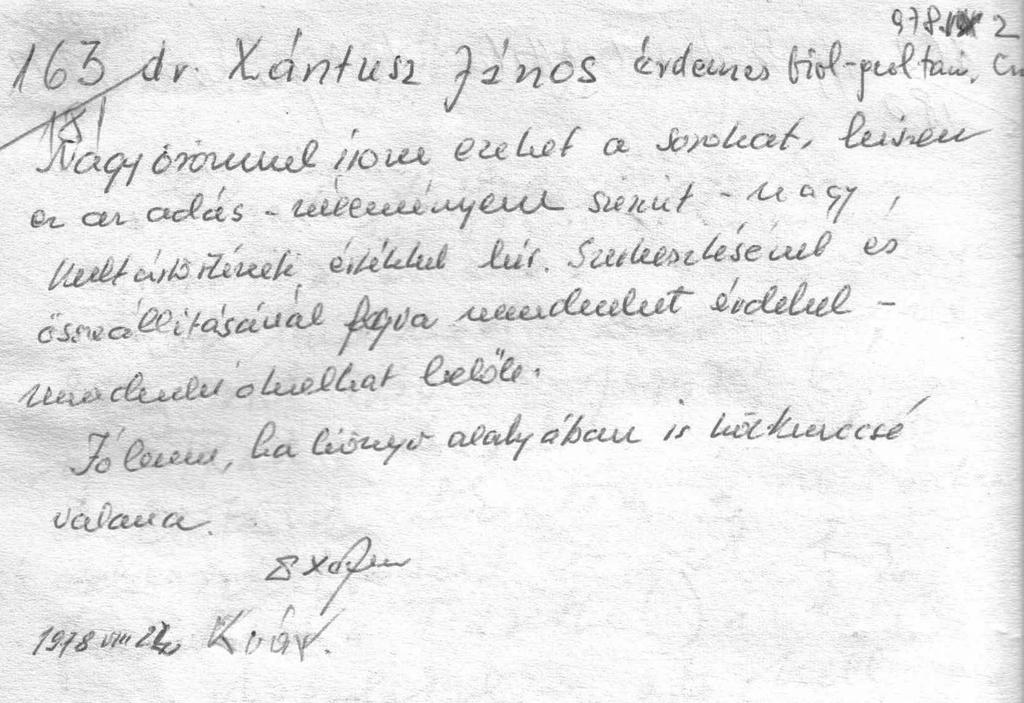 978. 2
163 dr. Xántusz János érdemes biol-geol tan.
181
Nagy örömmel írom ezeket a sorokat, hiszen
ez az adás - véleményem szerint - nagy,
kultúrtörténeti értékkel bír. Szerkesztésénél és
összeállításánál fogva mindenkit érdekel -
mindenki okulhat belőle.
Jó lenne, ha könyv alakjában is közkinccsé
válana.
1978 VIII 22 Kvár.